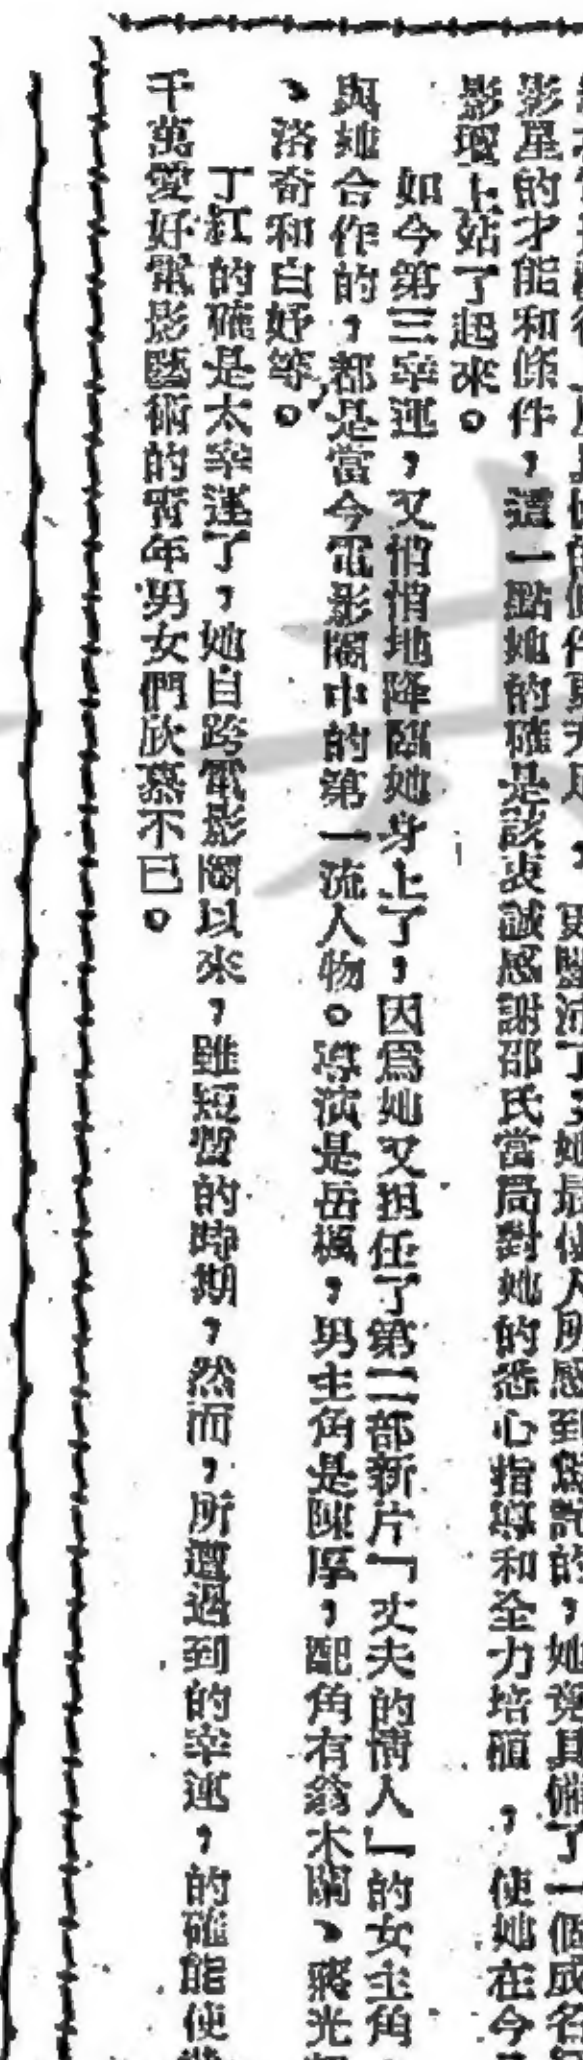 更驚沛了；她最使人所感到驚詫的，她竟具備了一個成名
影星的才能和條件，這一點她的確是該衷誠感謝邵氏當局對她的悉心指導和全力培殖，使她在今
影壇上站了起來。
如今第三幸運，又悄悄地降臨她身上了，因爲她又担任了第二部新片「丈夫的情人」的女主角
與她合作的，都是當今電影圈中的第一流人物。導演是岳楓，男主角是陳厚，配角有翁木蘭、蔣光
、洛奇和白妤等。
丁紅的確是太幸運了，她自跨電影圈以來，雖短暫的時期，然而，所遭遇到的幸運，的確能使
千萬愛好電影藝術的靑年男女們欣慕不已。